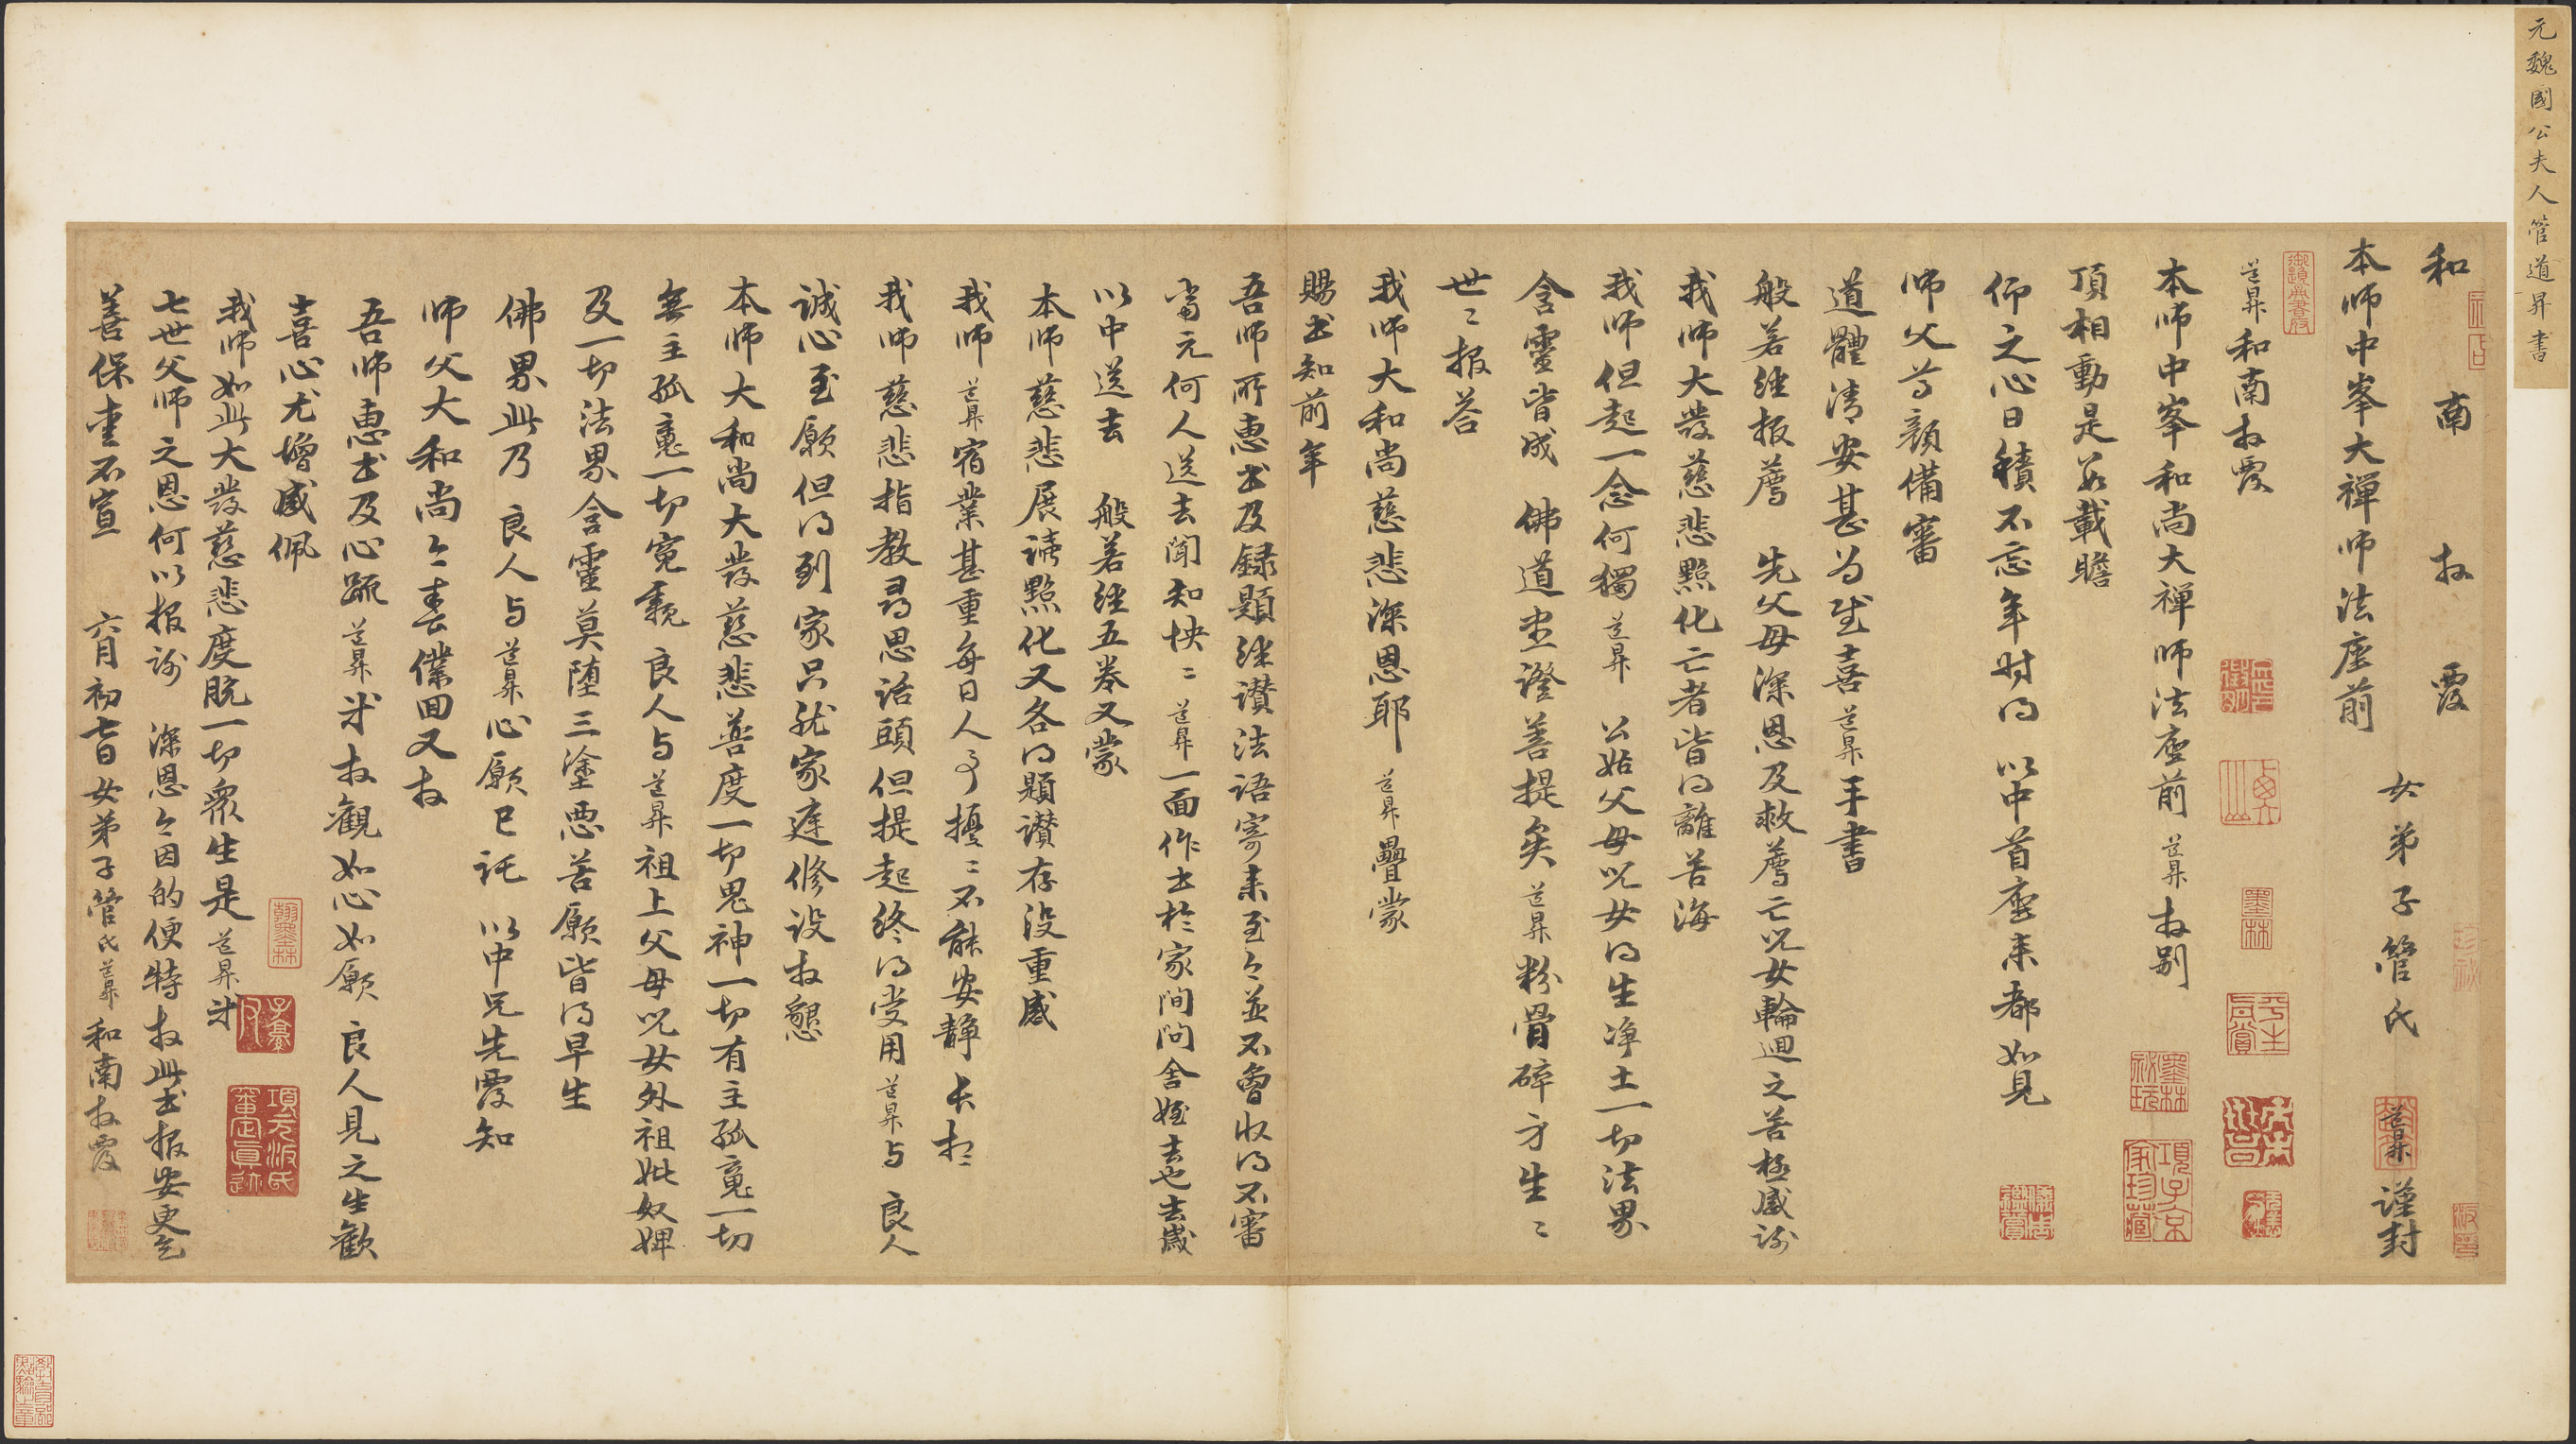 元魏國公夫人管道昇書
和南拜覆
女弟子管氏道昇謹封
本師中峯大禪師法座前
道昇和南拜覆
本師中峯和尚大禪師法座前道昇拜別
頂相動是數載瞻
仰之心日積不忘年时得以中首座来都如見
師父尊顏備審
道體清安甚为感喜道昇手書
般若经报薦先父母深恩及救薦亡児女輪迴之苦極感謝
我師大發慈悲點化亡者皆得離苦海
我師但起一念何獨道昇公姑父母児女得生净土一切法界
含靈皆成佛道盡證菩提矣道昇粉骨碎身生〻
世〻报荅
我師大和尚慈悲深恩耶道昇疊蒙
賜书知前年
吾師所惠书及録題经讃法语寄来至今並不曾收得不審
當元何人送去聞知怏〻道昇一面作书於家间问舍姪去也去歲
以中送去般若经五卷又蒙
本師慈悲展讀點化又各得題讃存没重感
我師道昇宿業甚重每日人事擾〻不能安静長想
我師慈悲指教尋思话頭但提起终得受用道昇与良人
誠心至願但得到家只就家庭修設拜懇
本師大和尚大發慈悲普度一切鬼神一切有主孤䰟一切
無主孤䰟一切寃親良人与道昇祖上父母児女外祖妣奴婢
及一切法界含靈莫堕三塗悪苦願皆得早生
佛界此乃良人与道昇心願已託以中兄先覆知
師父大和尚今春僕回又拜
吾師惠书及心疏道昇式拜觀如心如願良人見之生歡
喜心尤增感佩
我師如此大發慈悲度脱一切衆生是道昇式
七世父師之恩何以报謝深恩今因的便特拜此书报安更乞
善保重不宣六月初七日女弟子管氏道昇和南拜覆